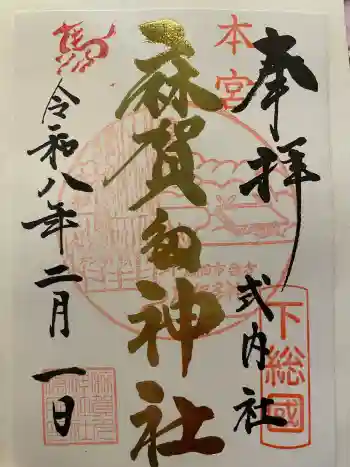 本宮
奉拝
式内社
下総國
麻賀多神社
馬
令和八年二月一日